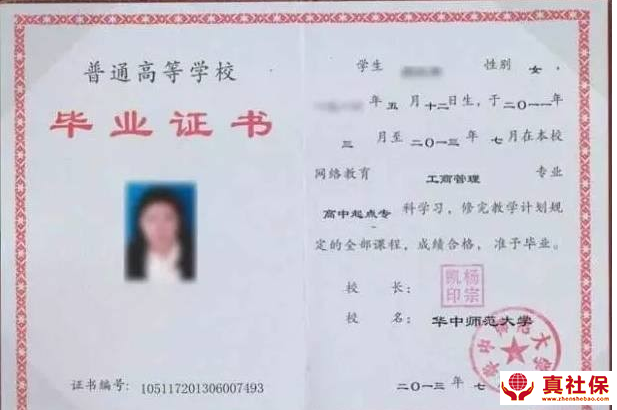 普通高等学校
毕业证书
证书编号: 105117201306007493
学生 性别 女,
年 五 月 十二日生,于二〇一一年
三 月至 二〇一三年 七 月在本校
网络教育 工商管理 专业
高中起点专 科学习,修完教学计划规
定的全部课程,成绩合格,准予毕业。
校 长: 杨宗凯印
校 名: 华中师范大学
二〇一三 年 七
真社保
www.zhenshebao.com